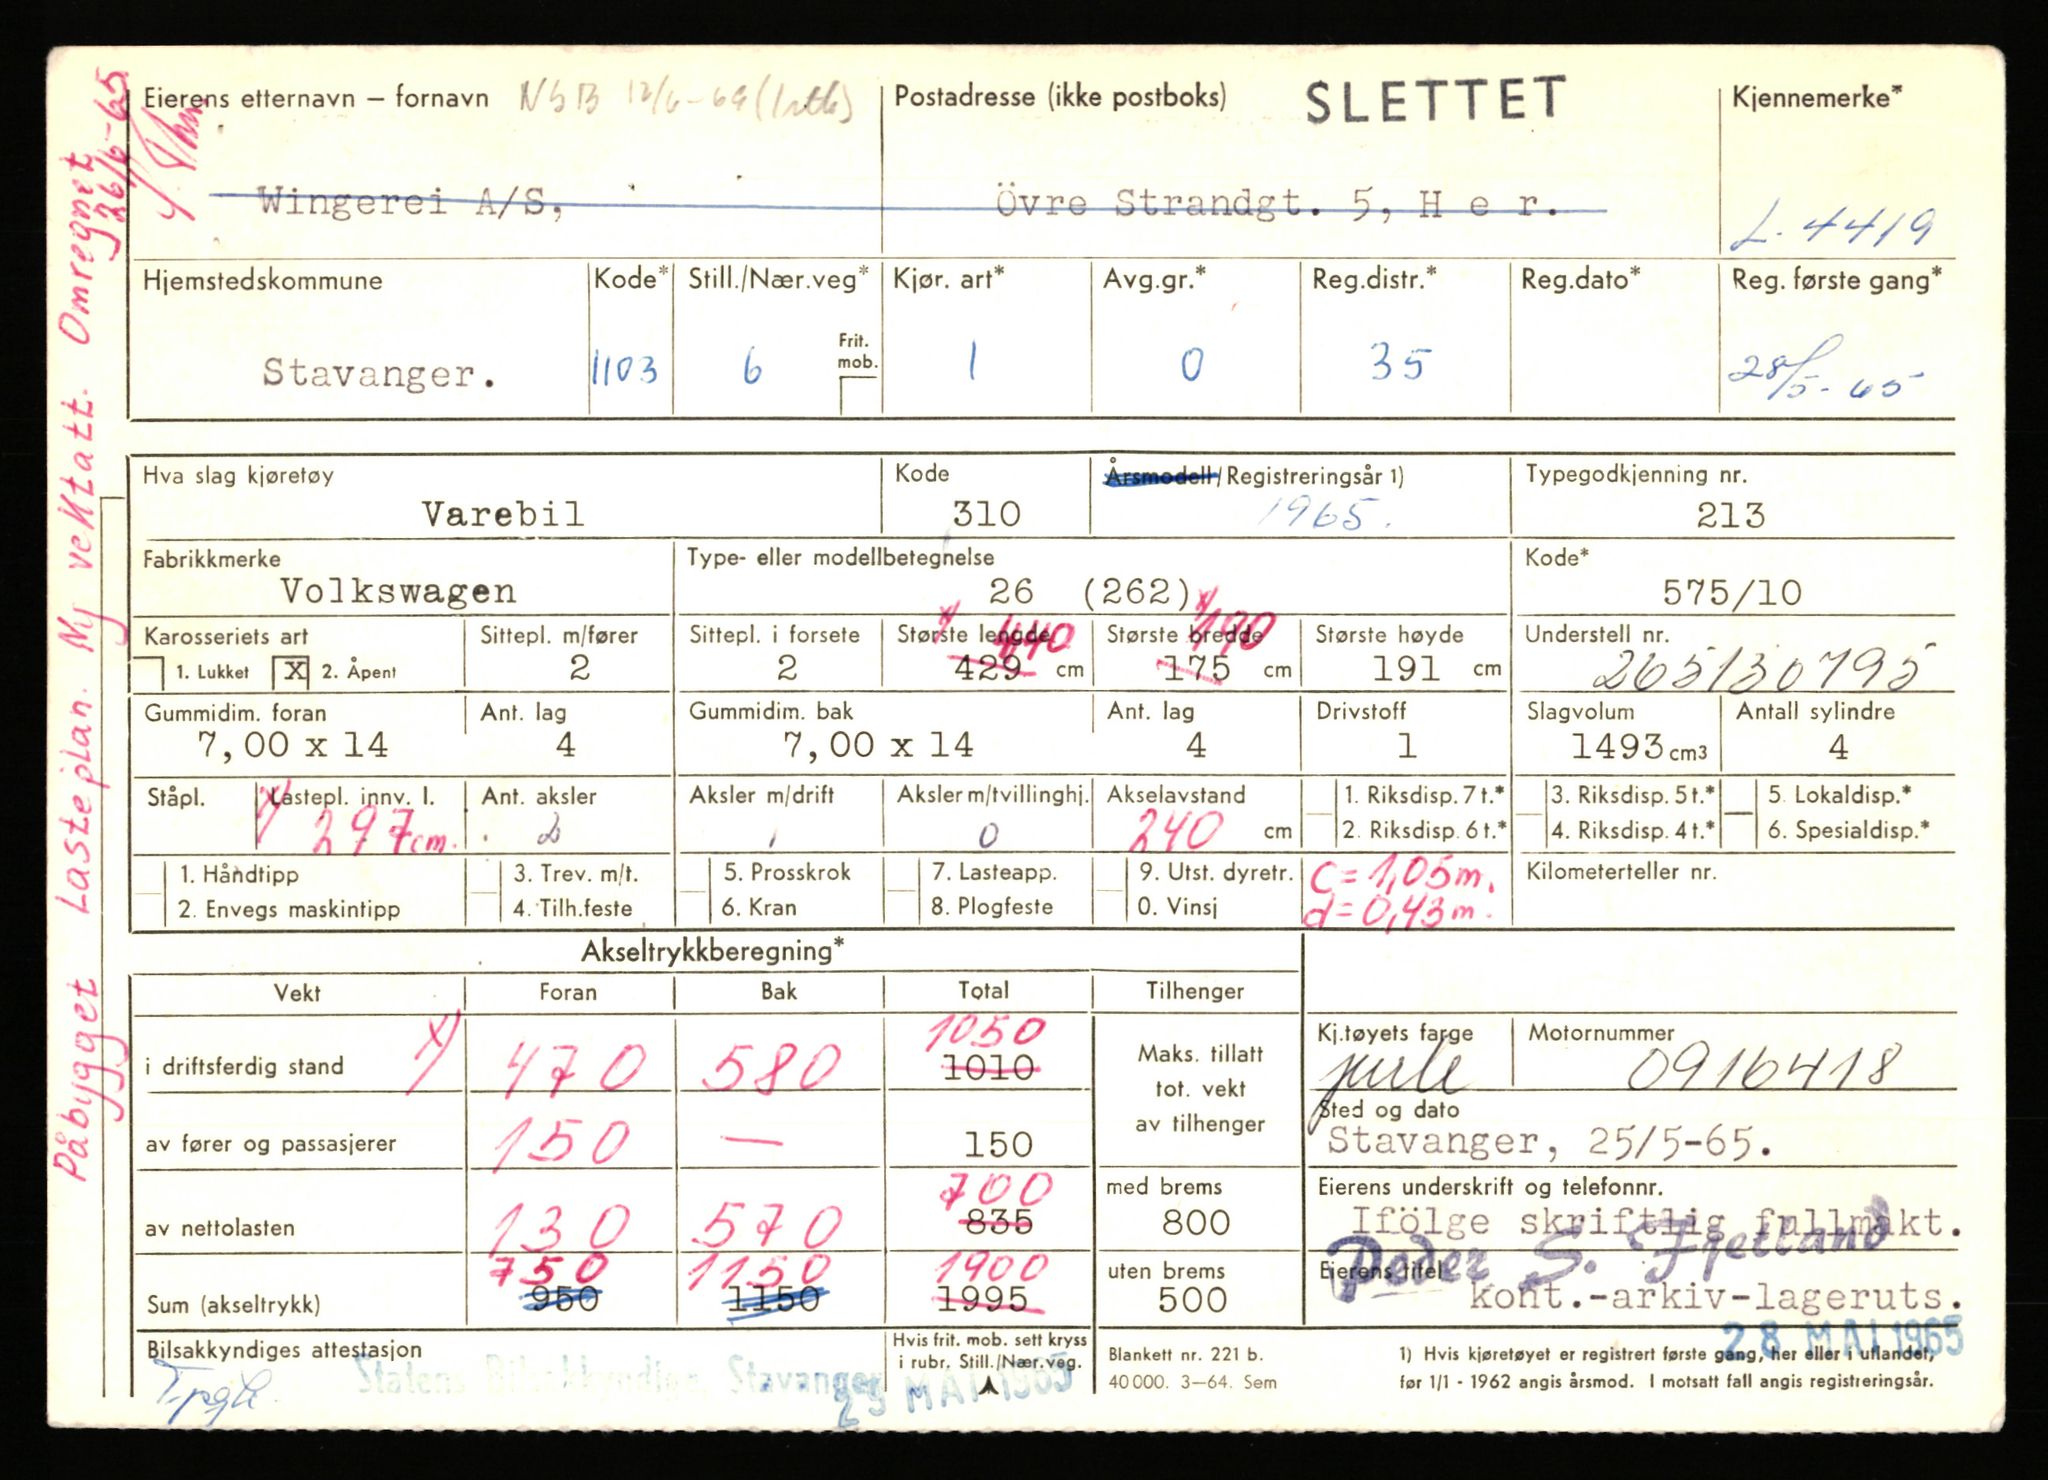 Påbygget Lasteplan. Ny vekttatt. Omregnet
26/6-65
Eierens etternavn – fornavn NSB 12/6-69
Postadresse (ikke postboks) SLETTET
Kjennemerke*
Wingerei A/S,
Övre Strandgt. 5, H e r.
L-4419
Hjemstedskommune
Kode*
Still./Nær.veg*
Kjør. art*
Avg.gr.*
Reg.distr.*
Reg.dato*
Reg. første gang*
Stavanger.
1103
6
Frit. mob.
1
0
35
28/5-65
Hva slag kjøretøy
Kode
Årsmodell/Registreringsår 1)
Typegodkjenning nr.
Varebil
310
1965.
213
Fabrikkmerke
Type- eller modellbetegnelse
Kode*
Volkswagen
26 (262)
575/10
Karosseriets art
Sittepl. m/fører
Sittepl. i forsete
Største lengde
Største bredde
Største høyde
Understell nr.
x/ 440
x/ 190
1. Lukket X 2. Åpent
2
2
429 cm
175 cm
191 cm
265130795
Gummidim. foran
Ant. lag
Gummidim. bak
Ant. lag
Drivstoff
Slagvolum
Antall sylindre
7,00 x 14
4
7,00 x 14
4
1
1493 cm3
4
Ståpl.
x/ Lastepl. innv. l.
Ant. aksler
Aksler m/drift
Aksler m/tvillinghj.
Akselavstand
1. Riksdisp. 7 t.*
3. Riksdisp. 5 t.*
5. Lokaldisp.*
297 cm.
2
1
0
240 cm
2. Riksdisp. 6 t.*
4. Riksdisp. 4 t.*
6. Spesialdisp.*
1. Håndtipp
3. Trev. m/t.
5. Prosskrok
7. Lasteapp.
9. Utst. dyretr.
c = 1,05 m.
Kilometerteller nr.
2. Envegs maskintipp
4. Tilh.feste
6. Kran
8. Plogfeste
0. Vinsj
d = 0,43 m.
Akseltrykkberegning*
Vekt
Foran
Bak
Total
Tilhenger
i driftsferdig stand x/
470
580
1050
1010
Maks. tillatt
tot. vekt
av tilhenger
Kj.tøyets farge
Motornummer
perle
0916418
av fører og passasjerer
150
—
150
Sted og dato
Stavanger, 25/5-65.
av nettolasten
130
570
700
835
med brems
800
Eierens underskrift og telefonnr.
Ifölge skriftlig fullmakt.
Peder S. Fjetland
Sum (akseltrykk)
750
950
1150
1150
1900
1995
uten brems
500
Eierens titel
kont.-arkiv-lageruts.
28 MAI 1965
Bilsakkyndiges attestasjon
Statens Bilsakkyndige, Stavanger
25 MAI 1965
Hvis frit. mob. sett kryss
i rubr. Still./Nær.veg.
Blankett nr. 221 b.
40 000. 3–64. Sem
1) Hvis kjøretøyet er registrert første gang, her eller i utlandet,
før 1/1 - 1962 angis årsmod. I motsatt fall angis registreringsår.